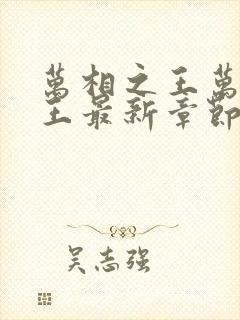 萬相之王萬
王最新章節
吴志强